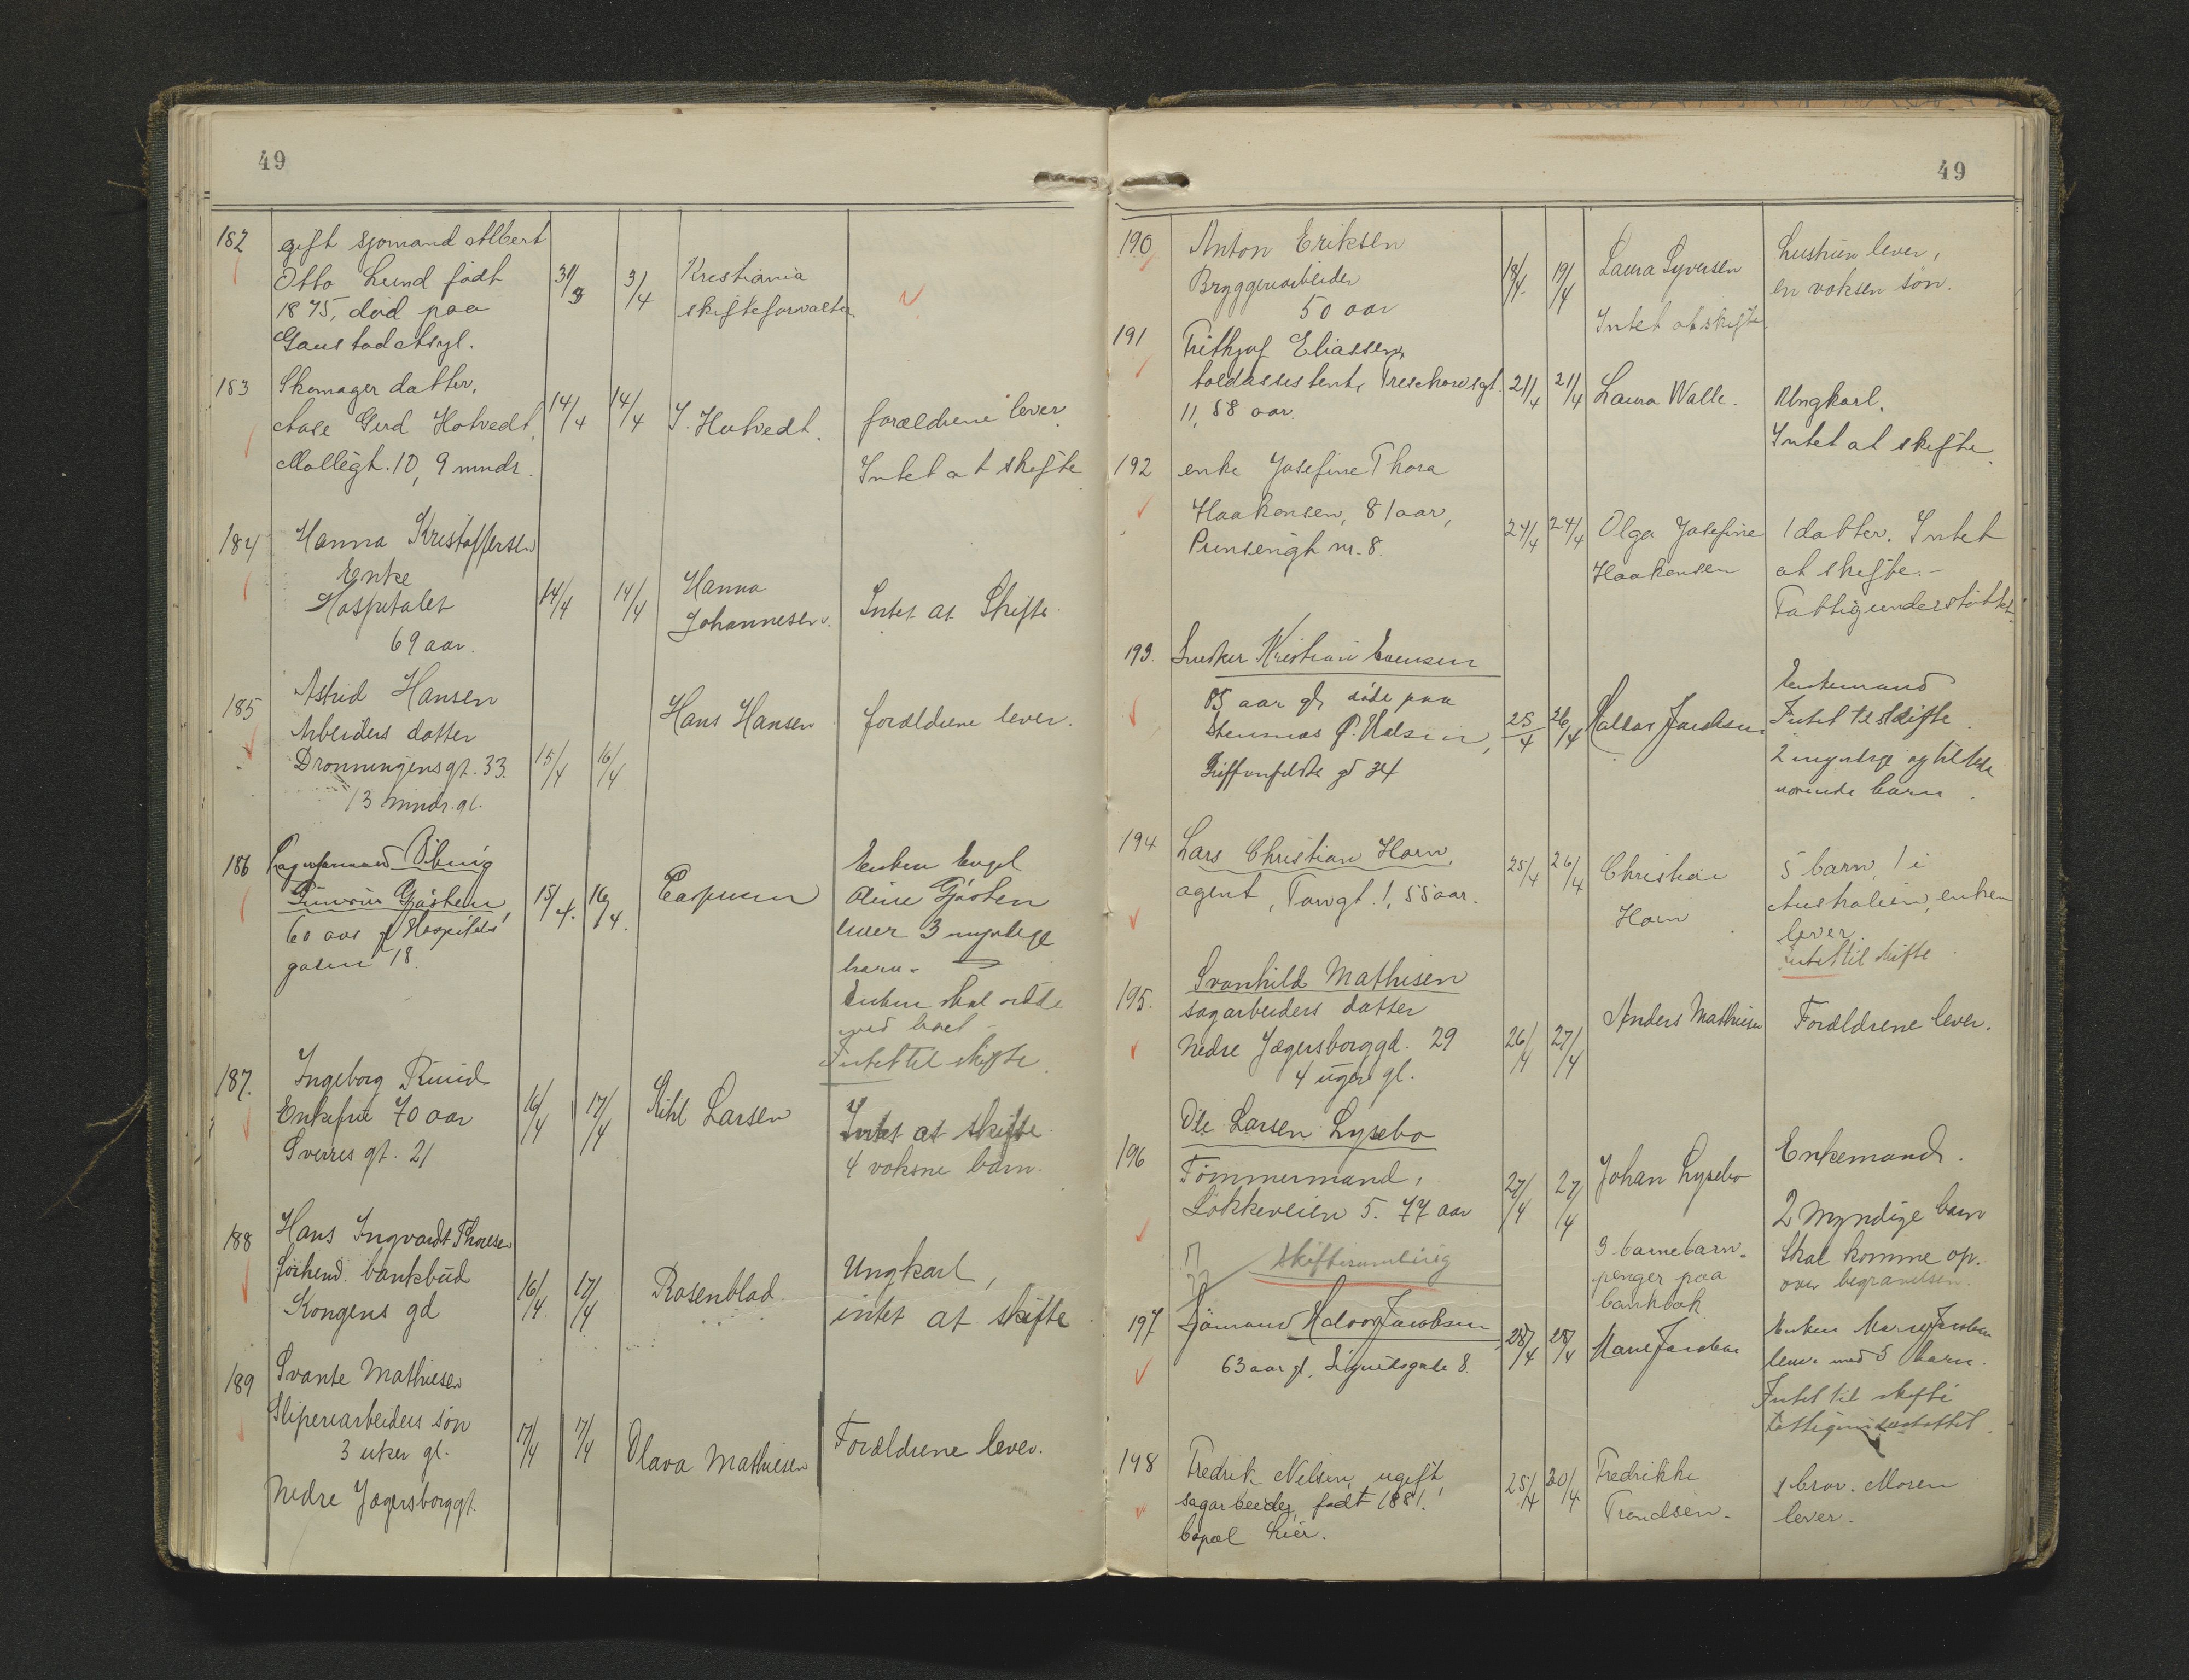 49
182
gift sjømand Albert
Otto Lund født
1875, død paa
Gaustad Asyl.
31/3
3/4
Kristiania
skifteforvalter
183
Skomager datter,
Aase Gerd Hotvedt,
Møllegt. 10, 9 mndr.
14/4
14/4
J. Hotvedt.
forældrene lever
Intet at skifte
184
Hanna Kristoffersen
Enke
Hospitalet
69 aar.
14/4
14/4
Hanna
Johannesen.
Intet at Skifte.
185
Astrid Hansen
Arbeiders datter
Dronningensgt. 33.
13 mndr. gl.
15/4
16/4
Hans Hansen
forældrene lever.
186
Gjøsten,
60 aar gl Hospitals
gaden 18.
15/4.
16/4.
Caspersen
Enken Engel
Oline Gjøsten
lever 3 myndige
barn.
Enken skal sidde
med boet -
Intet til skifte.
187.
Ingeborg Ruud
Enkefru 70 aar
Sverres gt. 21
16/4
17/4
Larsen
Intet at skifte
4 voksne barn.
188
Hans Ingvardt Thoresen
forhend. bankbud
Kongens gd
16/4.
17/4
Rosenblad.
Ungkarl,
intet at skifte
189
Svante Mathiesen
Sliperiarbeiders søn
3 uker gl.
Nedre Jægersborggt.
17/4
17/4
Olava Mathiesen
Forældrene lever.
49
190
Anton Eriksen
Bryggeriarbeider
50 aar
18/4.
19/4
Laura Syversen
Intet at skifte.
Hustruen lever,
en voksen søn.
191
Frithjof Eliassen,
toldassistent, Treschowsgt.
11, 58 aar.
21/4
21/4
Laura Walle.
Ungkarl.
Intet at skifte.
192
enke Josefine Thora
Haakensen, 81 aar,
Prinsensgt nr. 8.
24/4
24/4
Olga Josefine
Haakensen
1 datter. Intet
at skifte.-
Fattigunderstøttet.
193.
Snedker Kristian Evensen
85 aar gl, døde paa
25/4
26/4
Enkemand
Intet til skifte.
2 myndige og tilstede
værende barn.
194
Lars Christian Horn,
agent, Torvgt. 1, 55 aar.
25/4
26/4
Christian
Horn
5 barn, 1 i
Australien, enken
lever.
Intet til skifte
195.
Svanhild Mathisen
sagarbeiders datter
Nedre Jægersborggd. 29
4 uger gl.
26/4
27/4
Anders Mathiesen
Forældrene lever.
196
Ole Larsen Lysebo
Tømmermand,
Løkkeveien 5. 77 aar
27/4
27/4
Johan Lysebo
3 barnebarn.
penger paa
bankbok
Enkemand.
2 myndige barn
Skal komme op.
over begravelsen.
Skiftesamling
197
Sjømand Halvor Jacobsen
63 aar gl, Sigurdsgade 8.
28/4
28/4
Marie Jacobsen
Enken Marie Jacobsen
lever med 5 barn.
Intet til skifte
Fattigunderstøttet.
198
Fredrik Nelsen, ugift,
sagarbeider, født 1881.
bopæl her.
25/4
30/4
Fredrikke
Trondsen.
1 bror. Moren
lever.